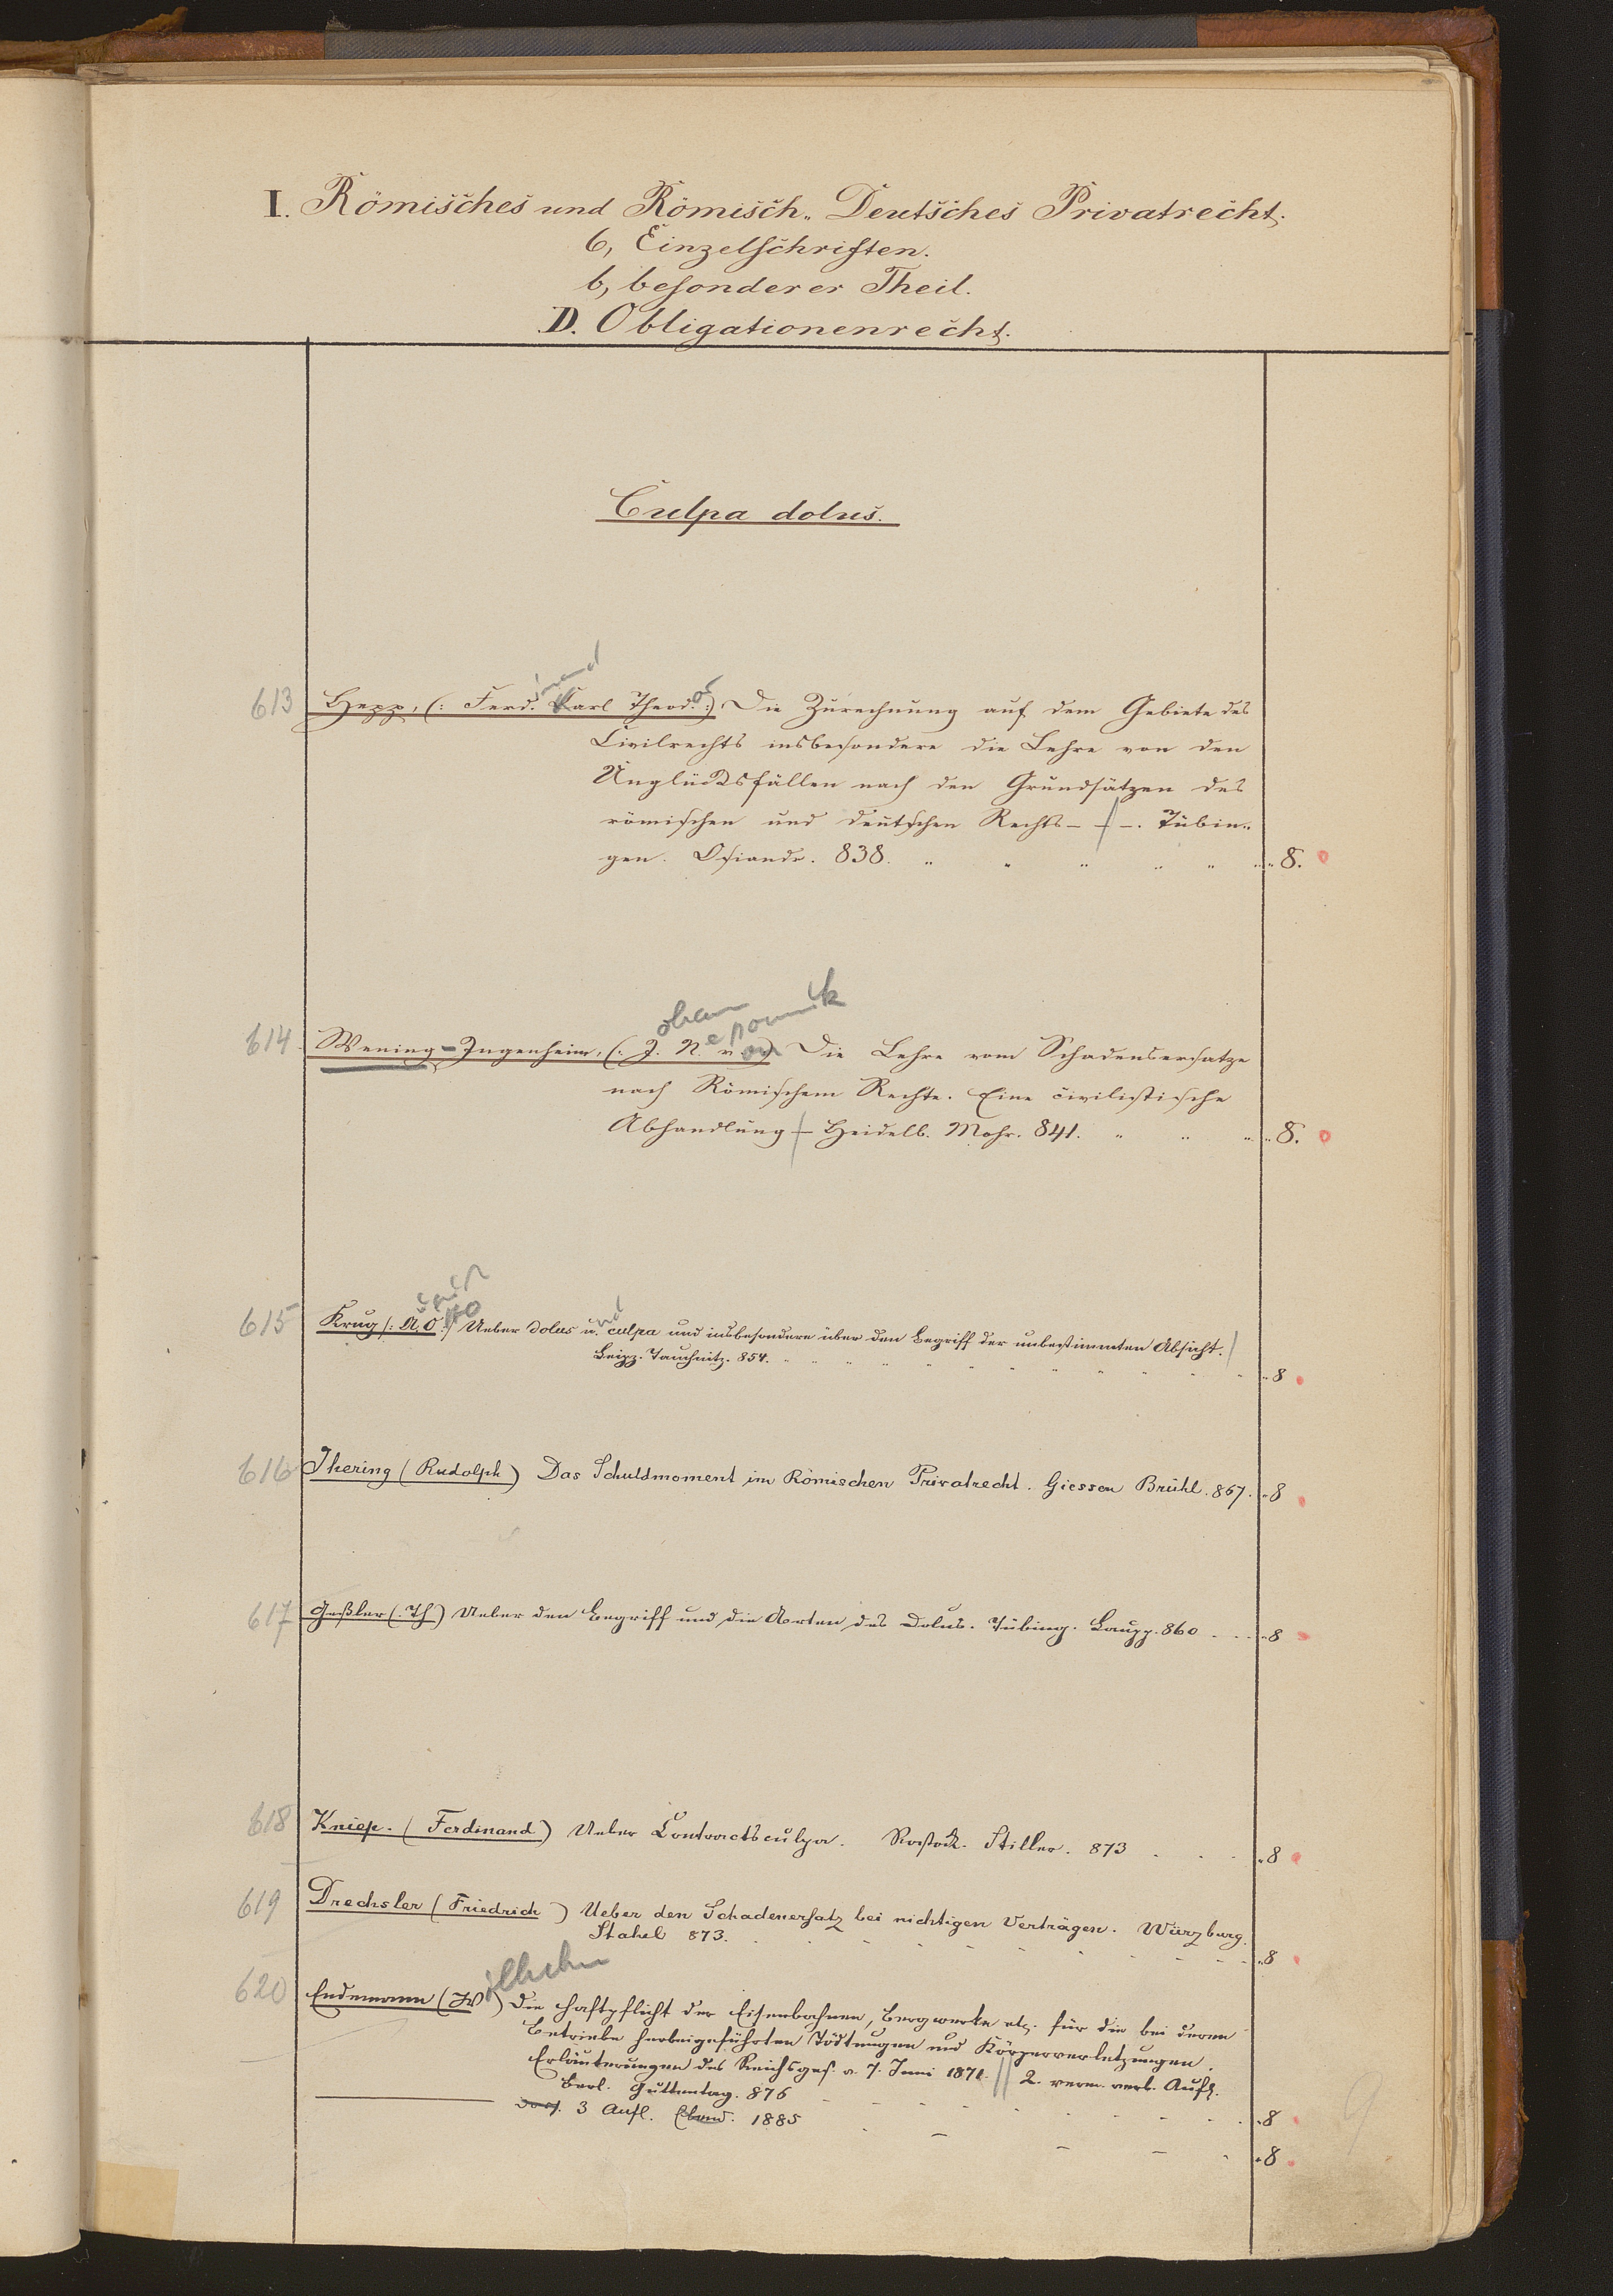 I. Römisches und Römisch„ Deutsches Privatrecht.
6, Einzelschriften.
b, besonderer Theil.
D. Obligationenrecht.
Culpa dolus.
613 Hepp, (: Ferd.inand Karl Theod.or :) Die Zurechnung auf dem Gebiete des
Civilrechts insbesondere die Lehre von den
Unglücksfällen nach den Grundsätzen des
römischen und deutschen Rechts - - -. Tübin„
gen. Osiandr. 838. „ „ „ „ „ „ 8.
614 Wening-Ingenheim, (: J.ohann N.epomuk v.on) Die Lehre vom Schadensersatze
nach Römischem Rechte. Eine civilistische
Abhandlung - Heidelb. Mohr. 841. „ „ „ 8.
615 Krug (: A. O :) Ueber dolus u.nd culpa und insbesondere über den Begriff der unbestimmten Absicht.
Leipz. Tauchnitz. 854. „ 8
616 Ihering (Rudolph) Das Schuldmoment im Römischen Privatrecht. Giessen Brühl. 867. „ 8
617 Geßler (: Th) Ueber den Begriff und die Arten des Dolus. Tübing. Laupp. 860 . . . „ 8
618 Kniep. (Ferdinand) Ueber Contractsculpa. Rostock. Stiller. 873 . . . „ 8
619 Drechsler (Friedrich) Ueber den Schadenersatz bei nichtigen Verträgen. Würzburg.
Stahel 873. „ 8
620 Endemann (Wilhelm) Die Haftpflicht der Eisenbahnen, Bergwerke etc. für die bei deren
Betriebe herbeigeführten Tödtungen und Körperverletzungen.
Erläuterungen des Reichsges. v. 7. Juni 1871. 2. verm. verb. Aufl.
Berl. Guttentag. 876 „ 8
3 Aufl. Ebend. 1885 „ 8
9